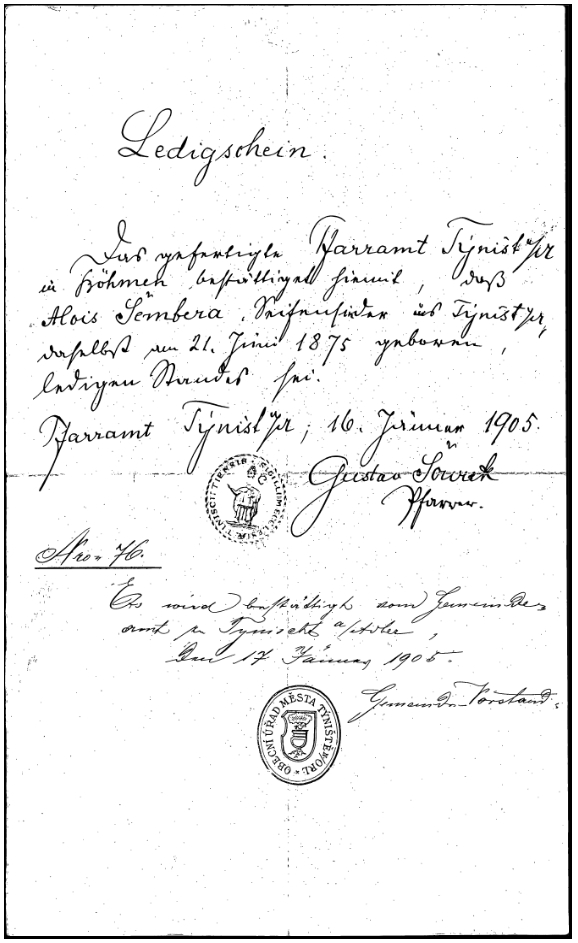 Ledigschein.
Das gefertigte Pfarramt Týništ a/A
in Böhmen bestättiget hiemit, daß
Alois Šembera, Seifensieder aus Týništ a/A,
daselbst am 21. Juni 1875 geboren,
ledigen Standes sei.
Pfarramt Týništ a/A, 16. Jänner 1905.
Gustav
Pfarrer.
SIGILLUM ECCLESIÆ TINISCHTIENSIS
Nro. 76.
Es wird bestättigt vom Gemeinde-
amt in Tynischt a/Adler,
den 17 Jänner 1905.
Gemeinde-Vorstand:
OBECNÍ ÚŘAD MĚSTA TÝNIŠTĚ N/ORL.